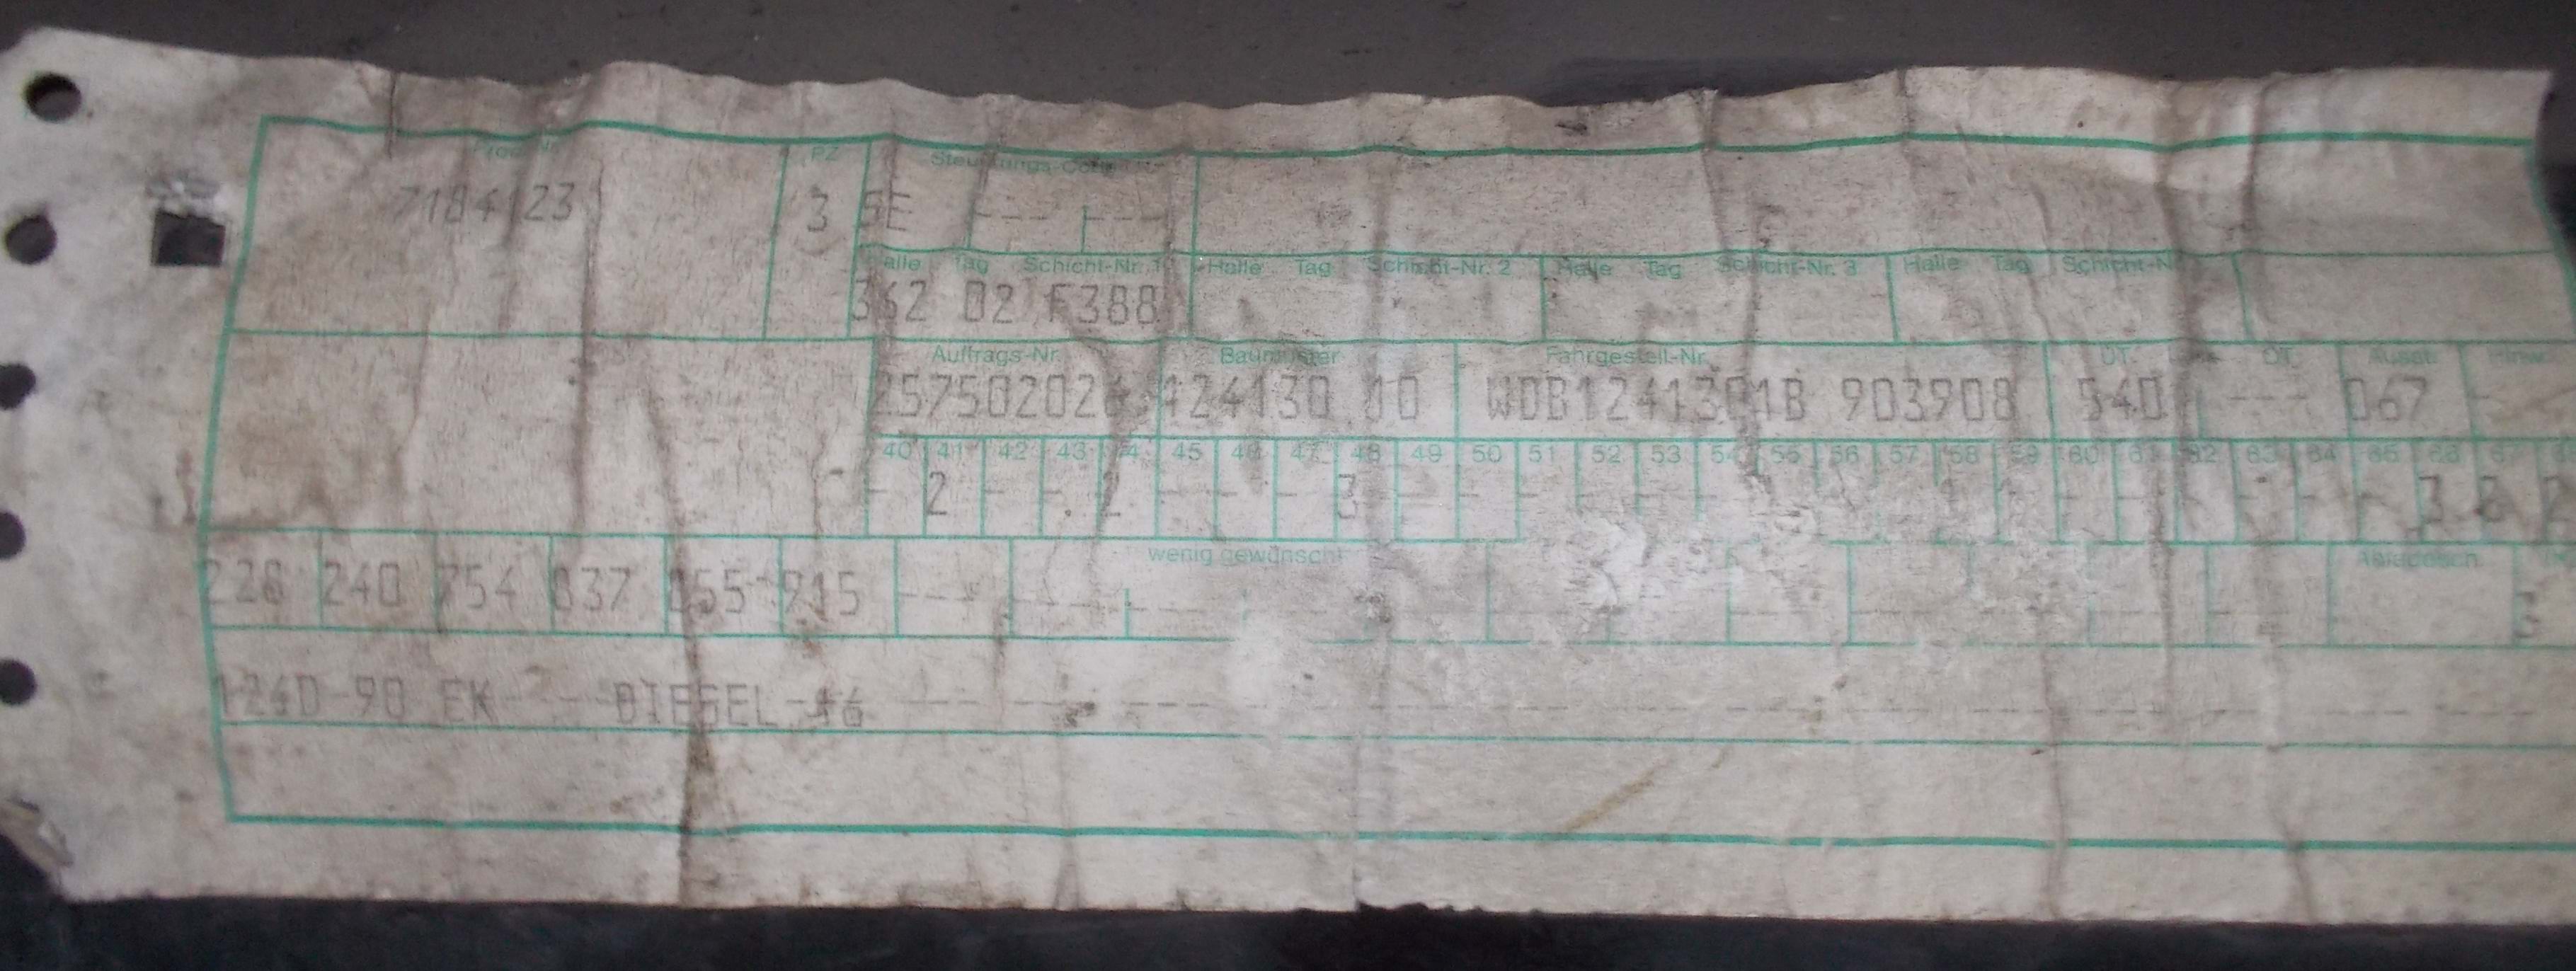 Prod.-Nr. PZ Steuerungs-Code
7184123 3 5E --- ---
Halle Tag Schicht-Nr. 1 Halle Tag Schicht-Nr. 2 Halle Tag Schicht-Nr. 3 Halle Tag Schicht-N
362 02 F388
Auftrags-Nr. Baumuster Fahrgestell-Nr. UT. OT. Ausst. Hinw.
124130 10 WDB1241301B 903908 540 --- 067
40 41 42 43 44 45 46 47 48 49 50 51 52 53 54 55 56 57 58 59 60 61 62 63 64 65 66 67
- 2 - - 2 - - - 3 - - - - - - 3
wenig gewünscht
240 754 037 055 915 ---
124D-90 EK --- DIESEL-46